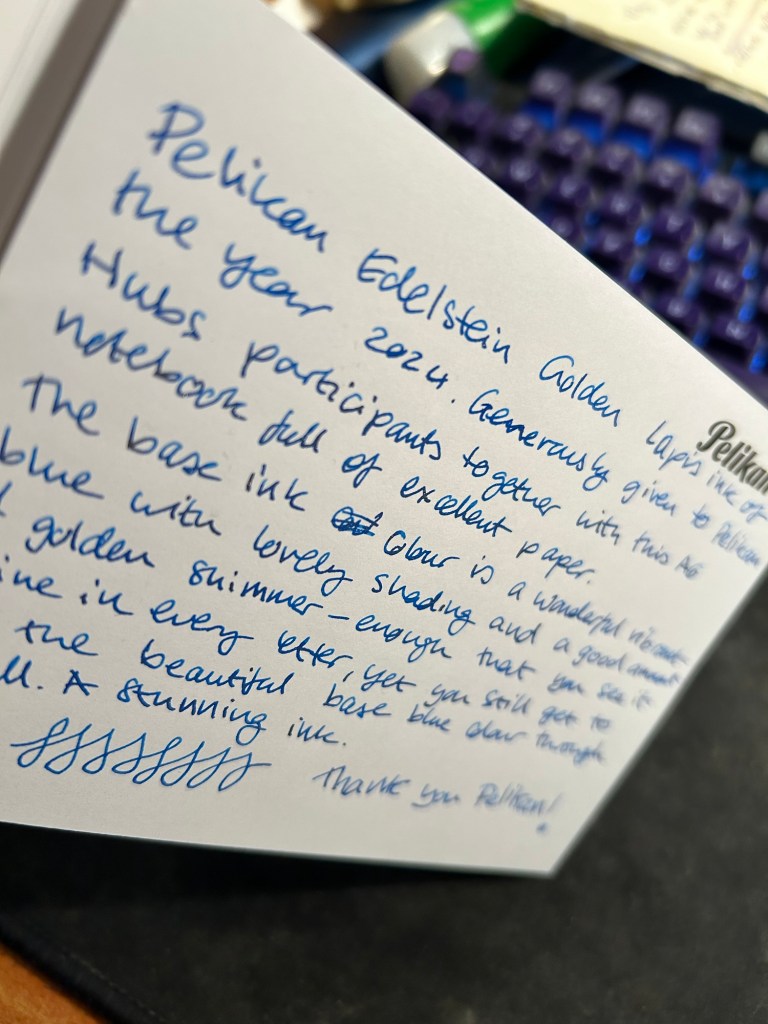 Pelikan
Pelikan Edelstein Golden Lapis ink of
the year 2024. Generously given to Pelikan
Hubs participants together with this A6
notebook full of excellent paper.
The base ink colour is a wonderful vibrant
blue with lovely shading and a good amount
golden shimmer – enough that you see it
in every letter, yet you still get to
the beautiful base blue colour through
A stunning ink.
Thank you Pelikan!